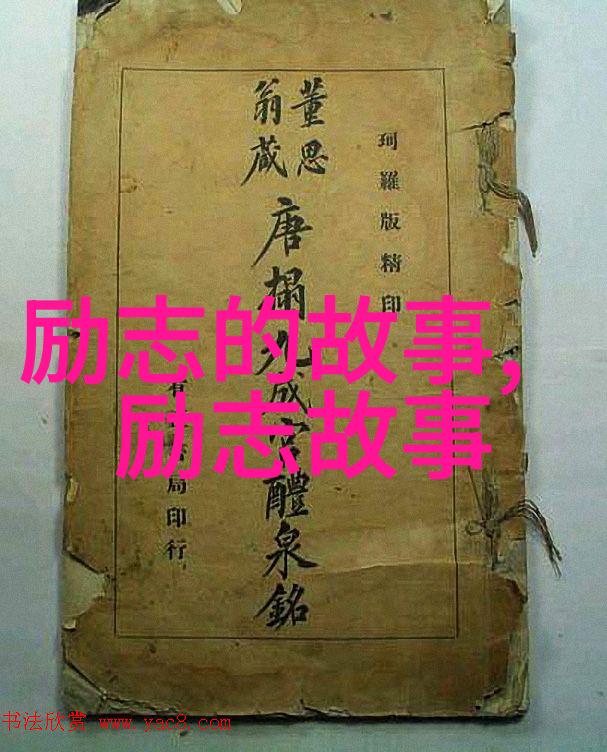 珂羅版精印
董思
翁藏
唐搨九成宮醴泉銘
有局印行
励志的故事,
励志故事
书法欣赏 www.yac8.com